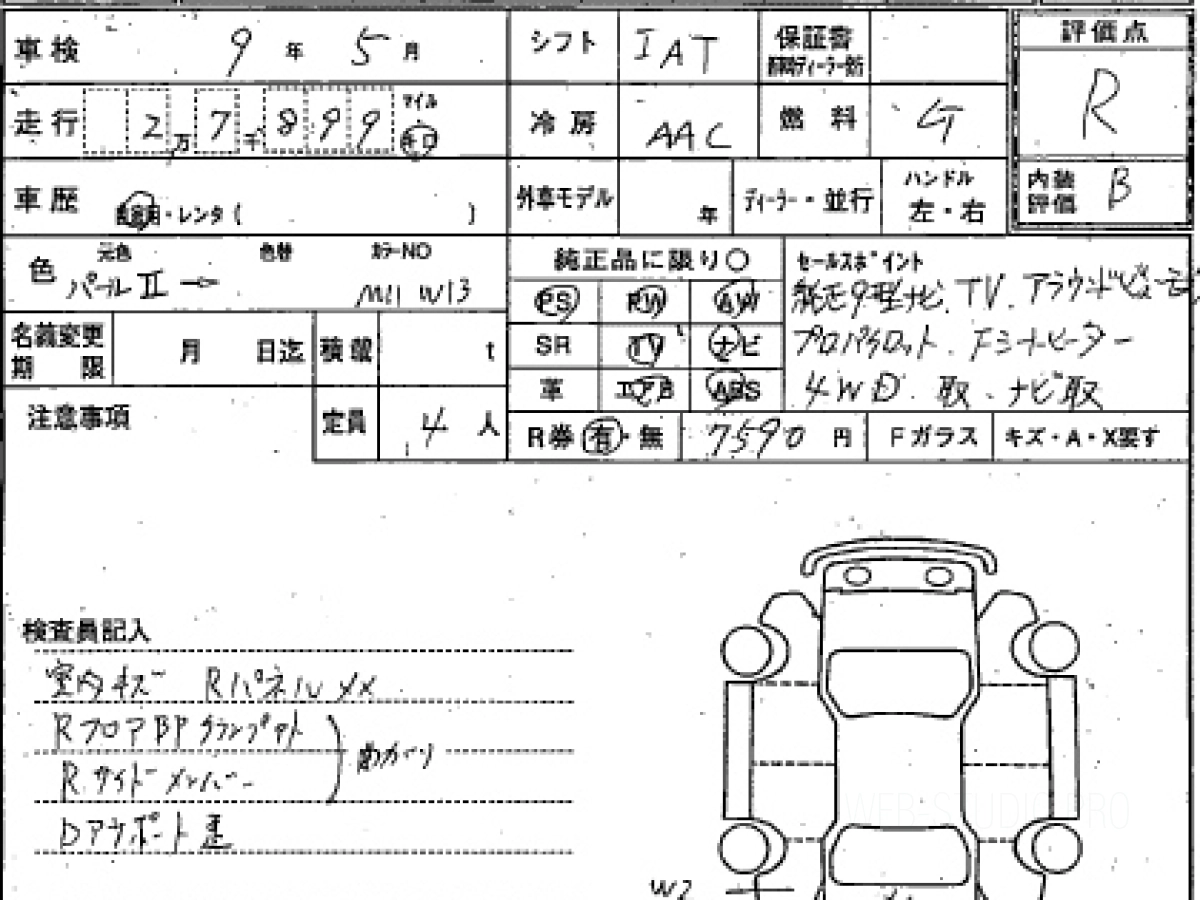 車検 9年 5月 シフト IAT 保証書 新車時ディーラー発行 評価点
R
走行 2万 7千 899 マイル キロ 冷房 AAC 燃料 G
車歴 自家用・レンタ( ) 外車モデル 年 ディーラー・並行 ハンドル 左・右 内装評価 B
色 元色 パールⅡ → 色替 カラーNO M11 W13
純正品に限り○ セールスポイント
PS PW AW 純正9型ナビ. TV. アラウンドビューモニ
SR TV ナビ プロパイロット. Fシートヒーター
革 エアB ABS 4WD. 取. ナビ取
名義変更期限 月 日迄 積載 t
注意事項 定員 4人 R券 有・無 7590円 Fガラス キズ・A・X要す
検査員記入
室内キズ Rパネルメメ
RフロアBPクランプあと
Rサイドメンバー
曲がり
W2
WEB-STUDIO.PRO